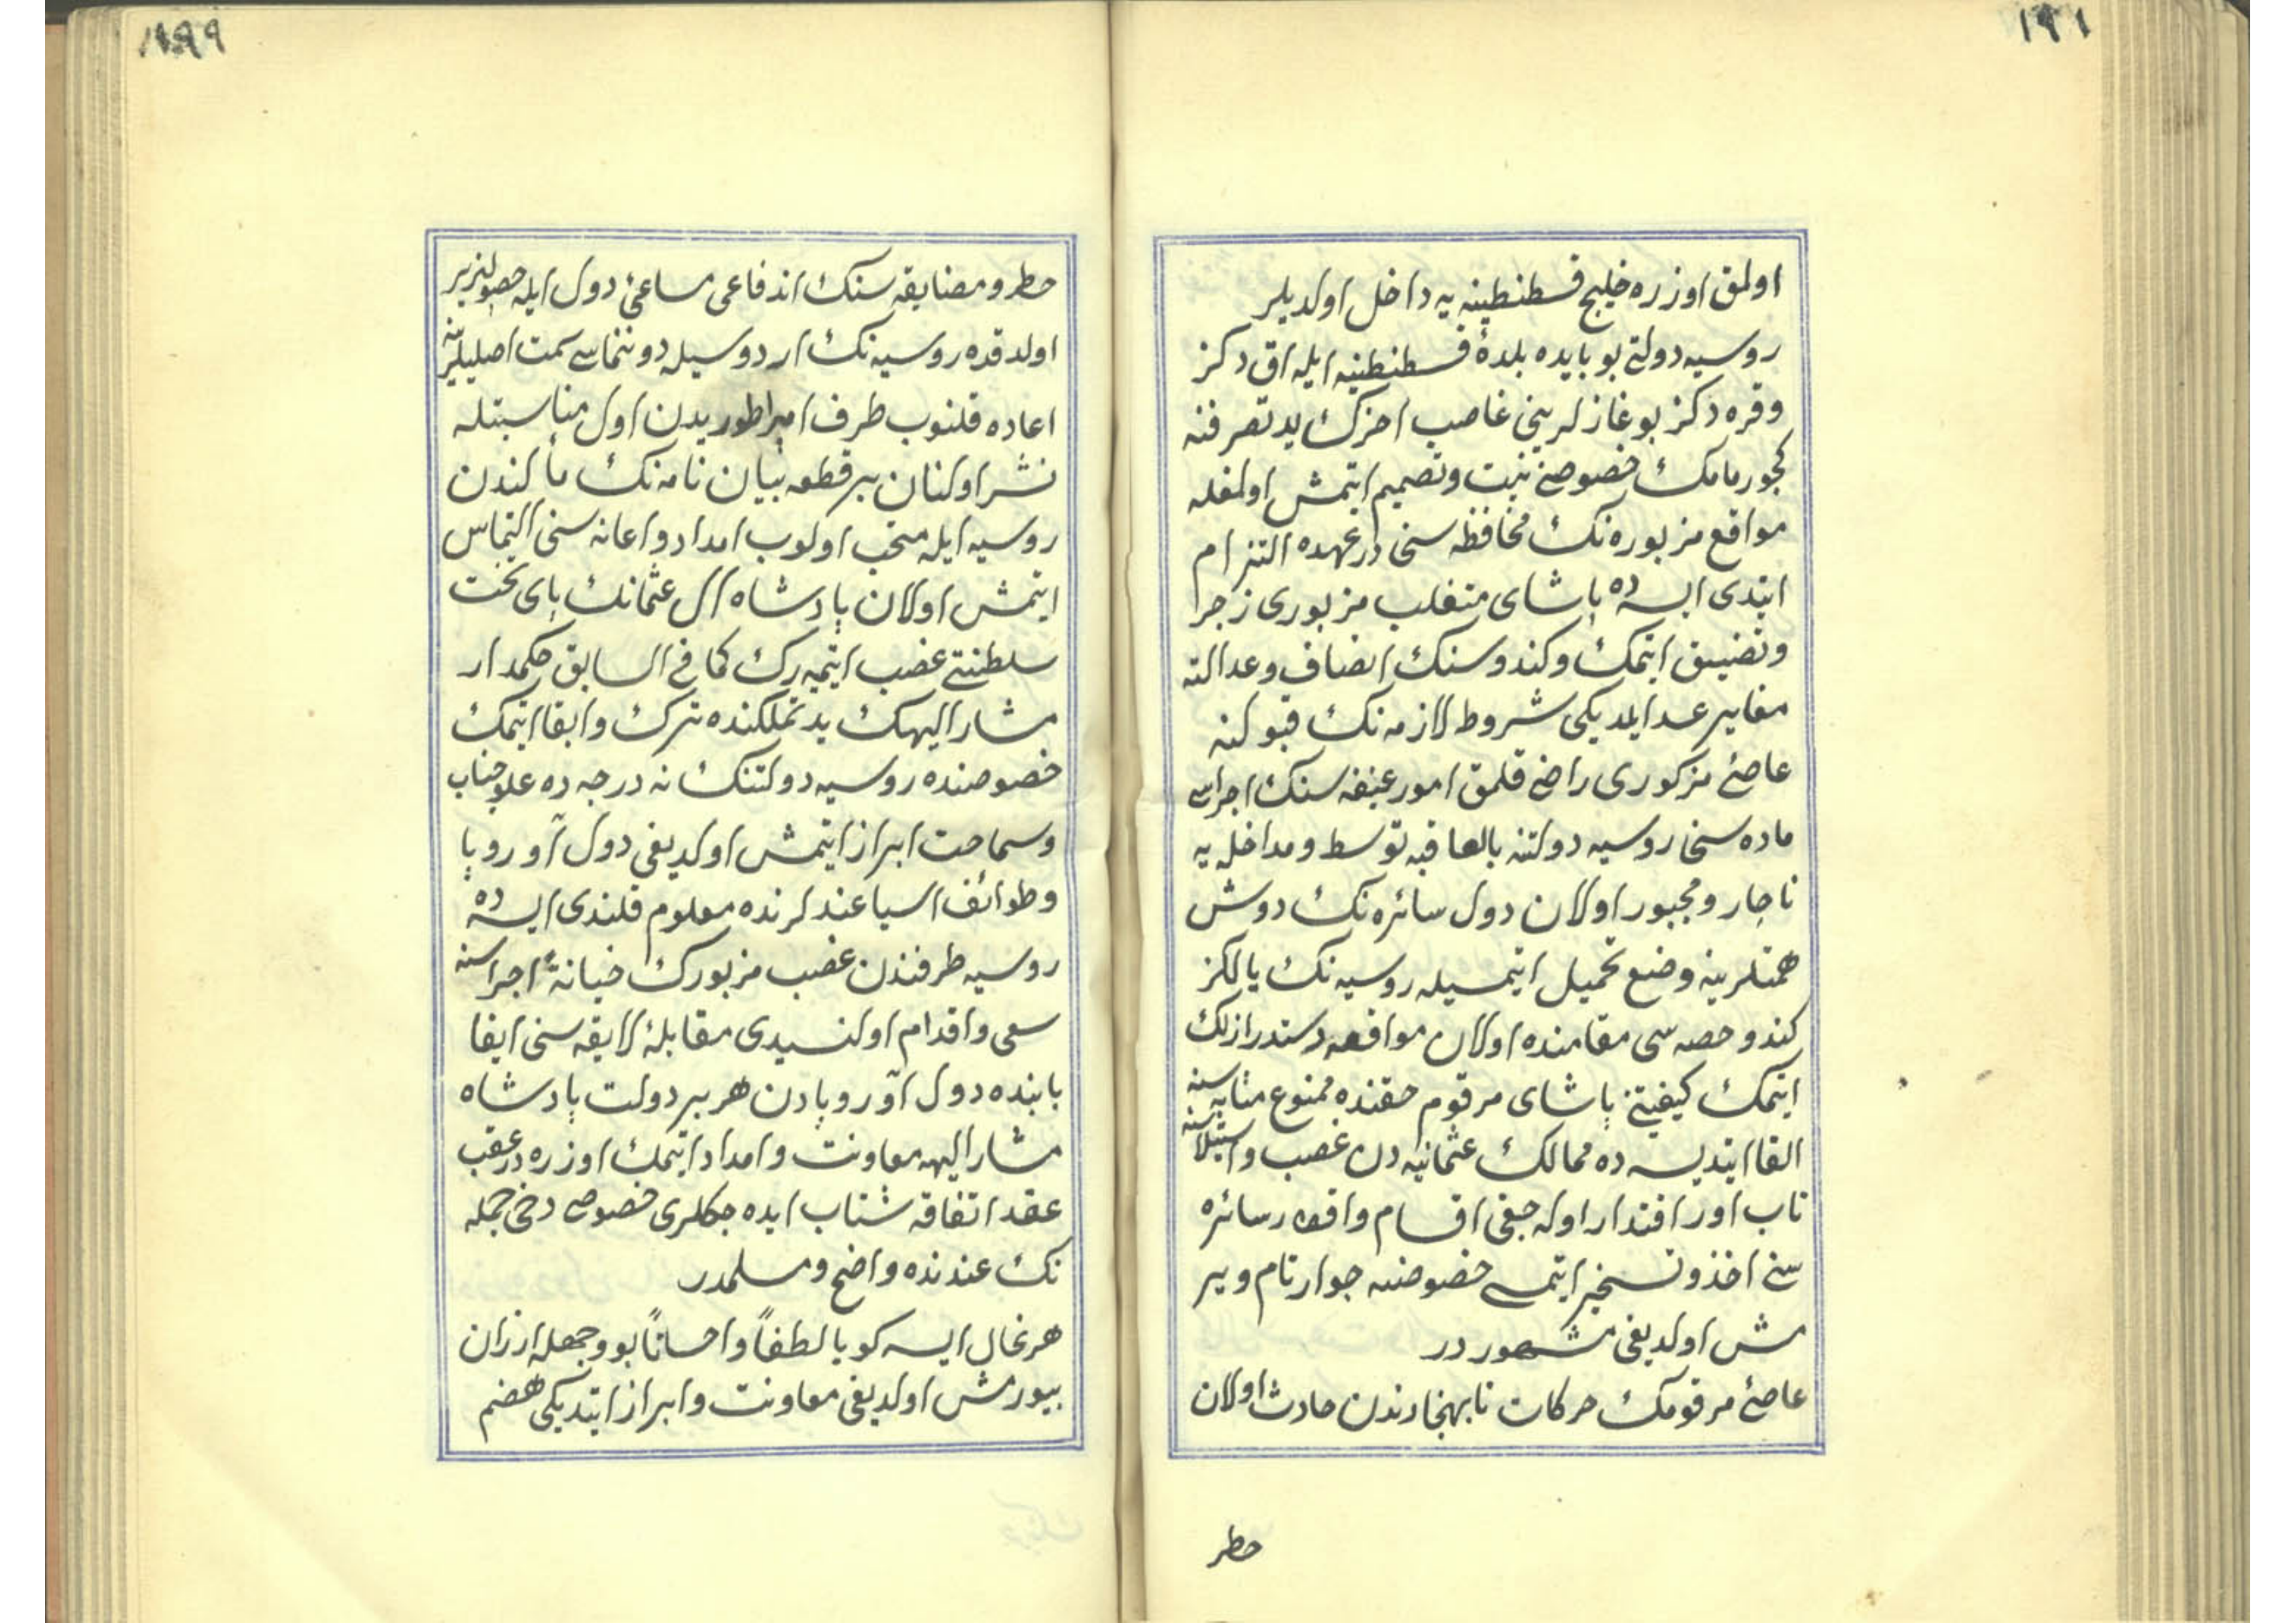 ١٩١
اولمق اوزره خليج قسطنطينيه يه داخل اولديلر
روسيه دولتى بوبابده بلدۀ قسطنطنيه ايله اق دكز
وقره دكز بوغازلرينى غاصب اخرك يد تصرفنه
كچورمامك خصوصنى نيت وتصميم ايتمش اولمغله
مواقع مزبوره نك محافظه سنى درعهده التزام
ايتدى ايسه ده پاشاى متغلب مزبورى زجر
وتضييق ايتمك وكندوسنك انصاف وعدالته
مغاير عد ايلديكى شروط لازمه نك قبولنه
عاصئ مزكورى راضى قلمق امور عنيفه سنك اجراسى
ماده سنى روسيه دولتنه بالعاقبه توسط ومداخله يه
ناچار ومجبور اولان دول سائره نك دوش
همتلرينه وضع تحميل ايتمسيله روسيه نك يالكز
كندو حصه سى مقامنده اولان مواقعه دستدرازلك
ايتمك كيفيتنى پاشاى مرقوم حقنده ممنوع مثابه سنه
القا ايتديسه ده ممالك عثمانيه دن غصب واستيلاسنه
تاب اور اقتدار اوله جغى اقسام واقطار سائره
سنى اخذ وتسخير ايتمسى خصوصنه جواز تام وير
مش اولديغى مشهوردر
عاصئ مرقومك حركات نابهنجارندن حادث اولان
حطر
١٩٩
حطر ومضايقه سنك اندفاعى مساعئ دول ايله حصولپزير
اولدقده روسيه نك اردوسيله دوننماسى سمت اصليلرينه
اعاده قلنوب طرف امپراطوريدن اول مناسبتله
نشر اولنان بر قطعه بيان نامه نك مألندن
روسيه ايله متحب اولوب امداد واعانه سنى التماس
ايتمش اولان پادشاه ال عثمانك پاى تخت
سلطنتى غصب ايتميه رك كما فى السابق حكمدار
مشار اليهك يد تملكنده ترك وابقا ايتمك
خصوصنده روسيه دولتنك نه درجه ده علو جناب
وسماحت ابراز ايتمش اولديغى دول آوروپا
وطوائف اسيا عندلرنده معلوم قلندى ايسه ده
روسيه طرفندن غصب مزبورك خيانةً اجراسنه
سعى واقدام اولنسيدى مقابلۀ لايقه سنى ايفا
بابنده دول آوروپادن هر بر دولت پادشاه
مشار اليهه معاونت وامداد ايتمك اوزره درعقب
عقد اتفاقه شتاب ايده جكلرى خصوصى دخى جمله
نك عندنده واضح ومسلمدر
هر نحال ايسه كويا لطفاً واحساناً بووجهله ارزان
بيورمش اولديغى معاونت وابراز ايتديكى هضم